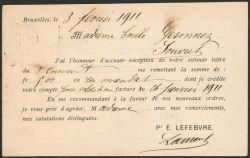 Bruxelles, le 3 février 1911
Madame
Souvret
J'ai l'honneur d'accuser réception de votre estimée lettre
du courant me remettant la somme de :
fr. en un mandat dont je crédite
votre compte facture du janvier 1911
En me recommandant à la faveur de vos nouveaux ordres,
je vous prie d'agréer, Madame avec mes remerciements,
mes salutations distinguées.
Pr E. LEFEBVRE,